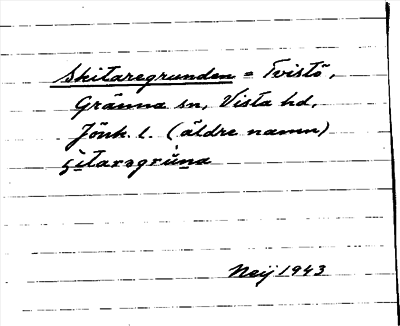 Skitaregrunden = Tvistö,
Gränna sn, Vista hd,
Jönk. l. (äldre namn)
ʂìtarəgrùna
Neij 1943